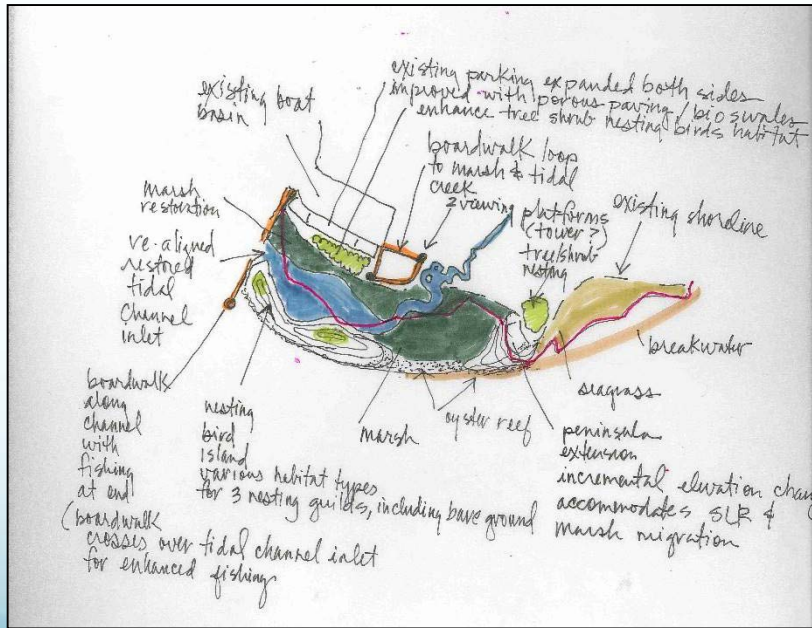 existing boat
basin
existing parking expanded both sides
improved with porous paving / bioswales
enhance tree shrub nesting birds habitat
boardwalk loop
to marsh & tidal
creek
2 viewing
platforms
(tower?)
tree/shrub
nesting
existing shoreline
marsh
restoration
re-aligned
restored
tidal
channel
inlet
breakwater
seagrass
boardwalk
along
channel
with
fishing
at end
(boardwalk
crosses over tidal channel inlet
for enhanced fishing
nesting
bird
island
various habitat types
for 3 nesting guilds, including bare ground
marsh
oyster reef
peninsula
extension
incremental elevation chang
accommodates SLR &
marsh migration